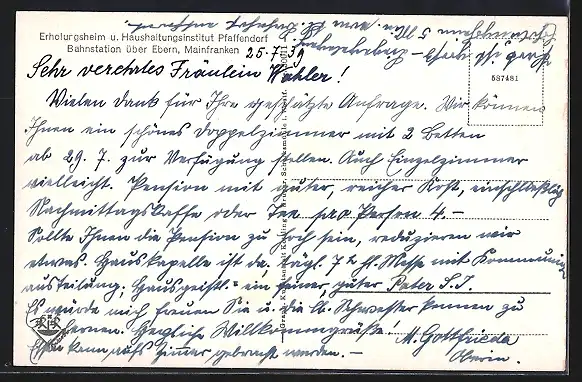 Erholungsheim u. Haushaltungsinstitut Pfaffendorf
Bahnstation über Ebern, Mainfranken
25.7.39
587481
Sehr verehrtes Fräulein Wahler!
Vielen Dank für Ihre geschätzte Anfrage. Wir können
Ihnen ein schönes Doppelzimmer mit 2 Betten
ab 29. 7. zur Verfügung stellen. Auch Einzelzimmer
vielleicht. Pension mit guter, reicher Kost, einschließlich
Nachmittagskaffe oder Tee pro Person 4.–
Sollte Ihnen die Pension zu hoch sein, reduzieren wir
etwas. Hauskapelle ist da, tägl. 7 h hl. Messe mit Kommunion
austeilung. Hausgeistl. = ein feiner, guter Pater S.J.
Es würde mich freuen Sie u. die Schwester kennen zu
lernen. Herzliche Willkommgrüße!
M. Gottfrieda
Oberin.
Essen kann aufs Zimmer gebracht werden. –